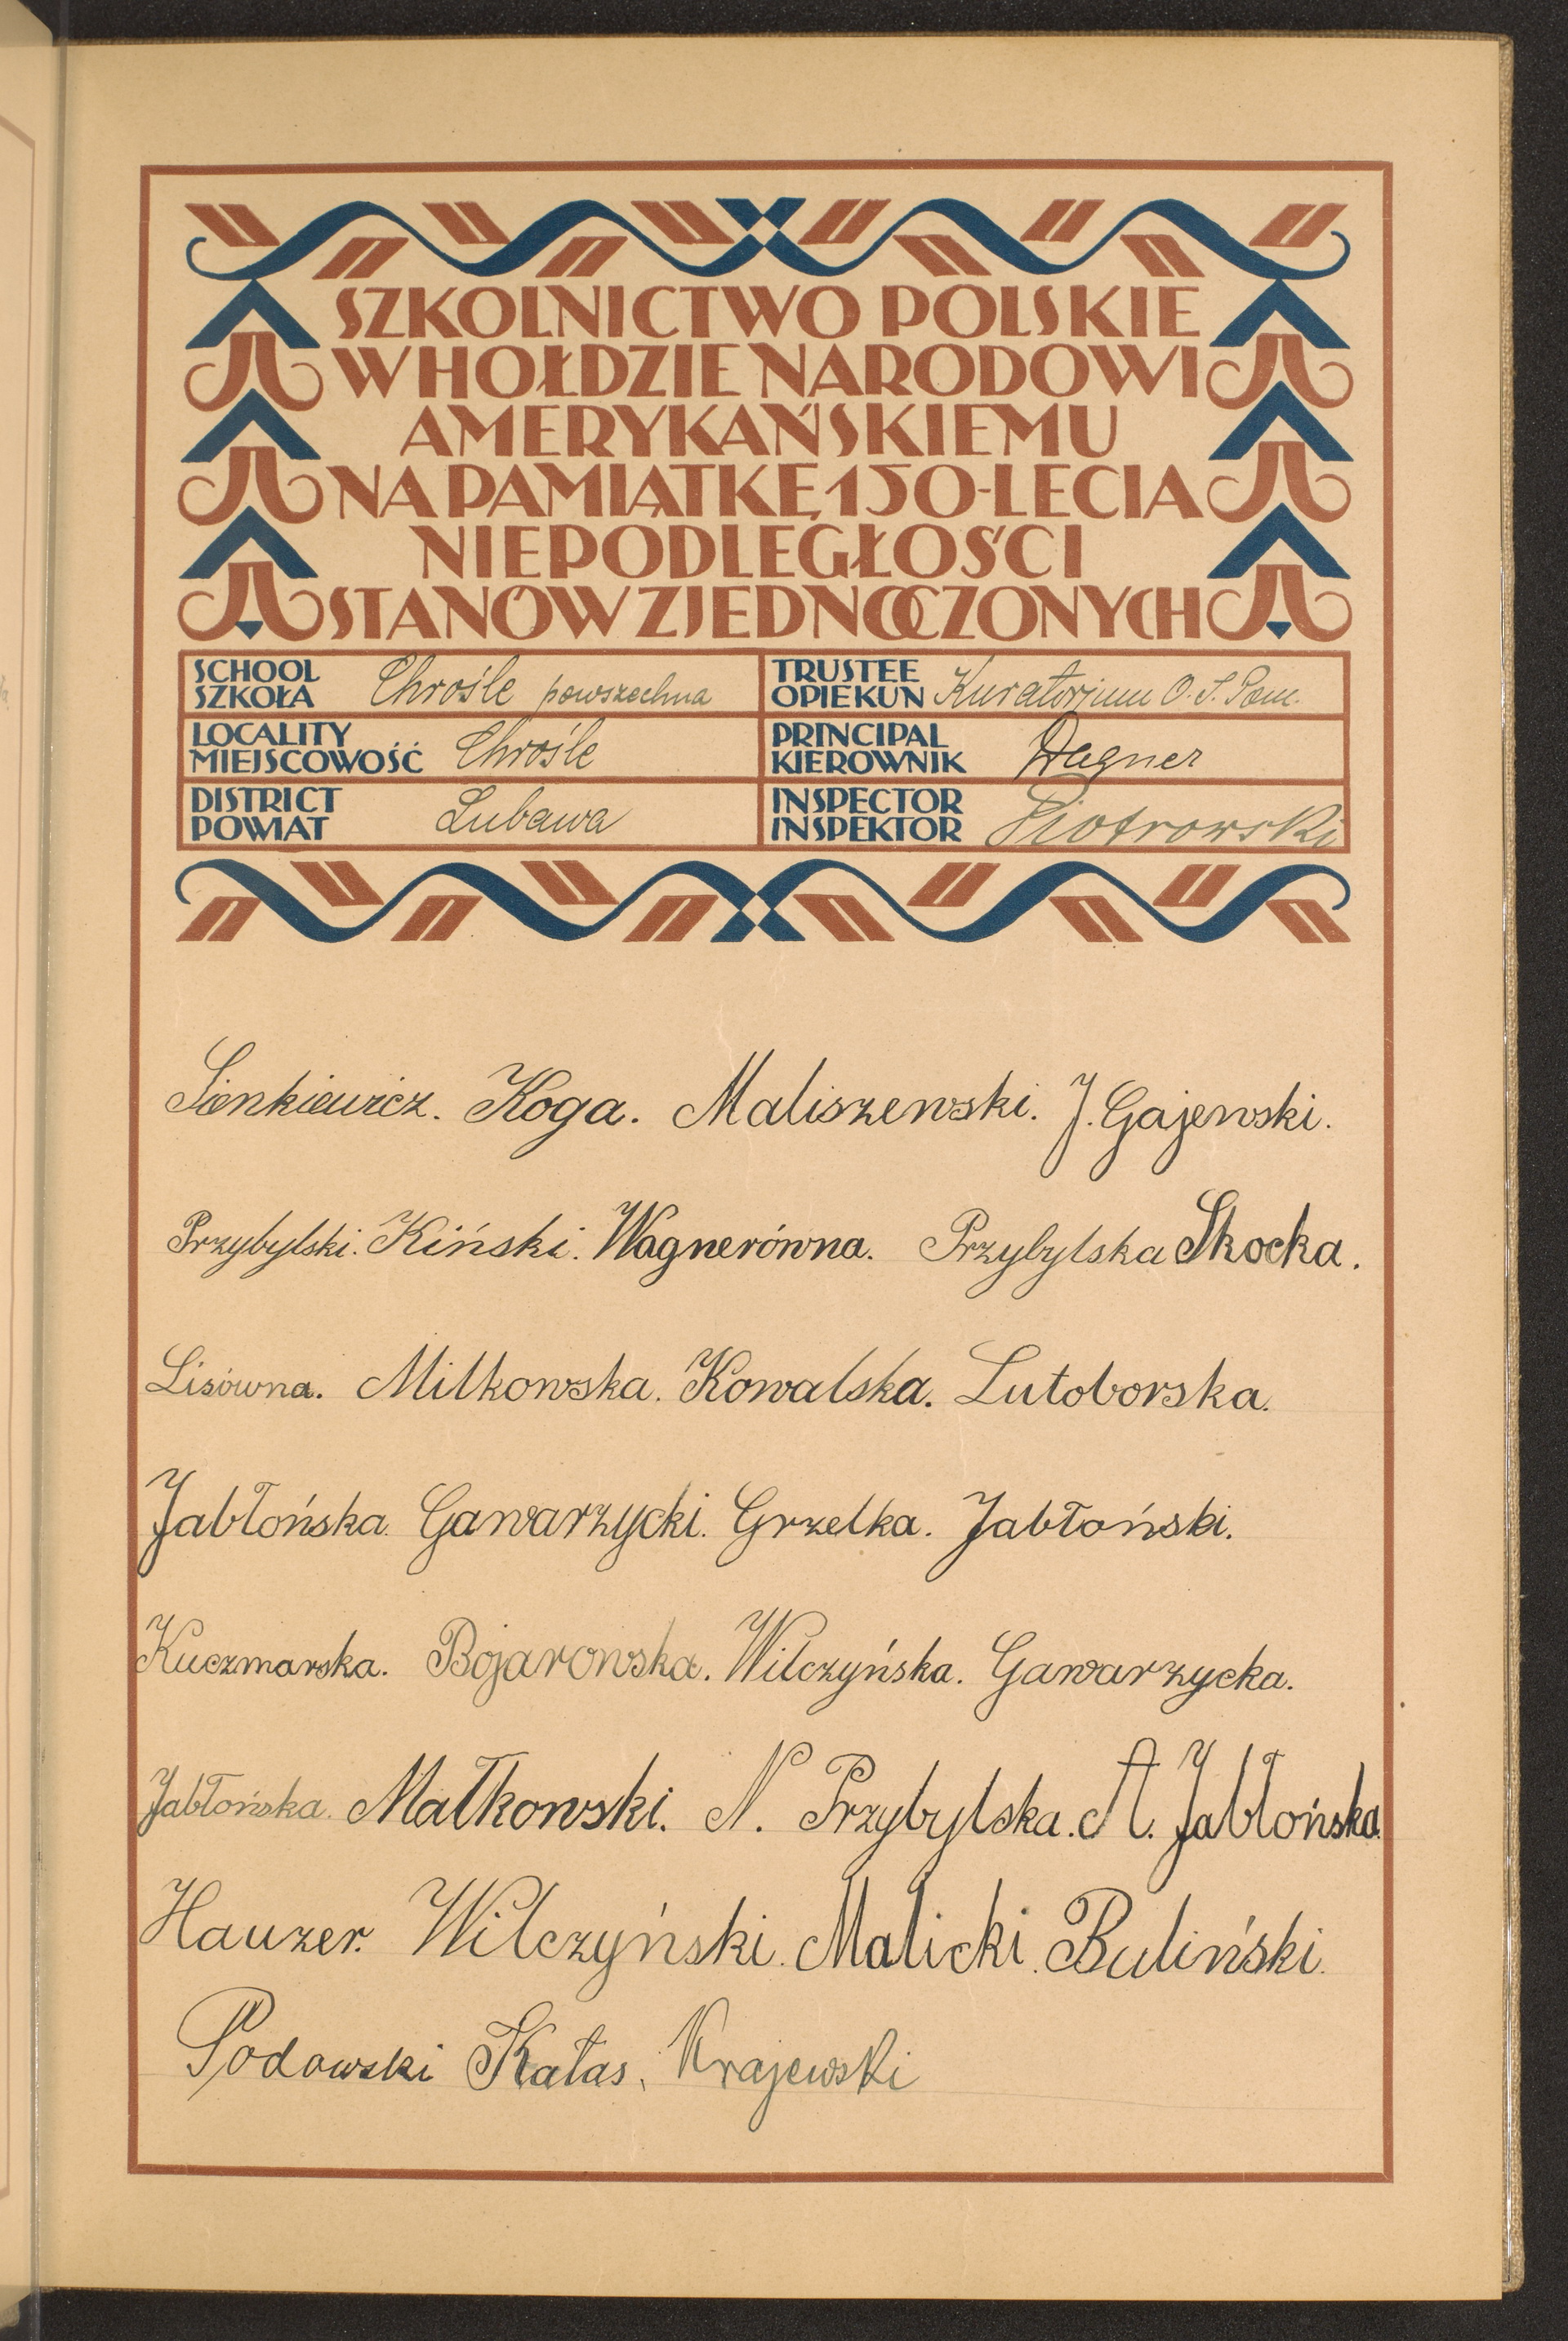 SZKOLNICTWO POLSKIE
W HOŁDZIE NARODOWI
AMERYKAŃSKIEMU
NA PAMIĄTKĘ 150-LECIA
NIEPODLEGŁOŚCI
STANÓW ZJEDNOCZONYCH
SCHOOL
SZKOŁA Chrośle powszechna
TRUSTEE
OPIEKUN Kuratorjum O. S. Pom.
LOCALITY
MIEJSCOWOŚĆ Chrośle
PRINCIPAL
KIEROWNIK Wagner
DISTRICT
POWIAT Lubawa
INSPECTOR
INSPEKTOR Piotrowski
Sienkiewicz. Koga. Maliszewski. J. Gajewski.
Przybylski. Kiński. Wagnerówna. Przybylska Skocka.
Lisówna. Milkowska. Kowalska. Lutoborska.
Jabłońska. Gawarzycki. Grzelka. Jabłoński.
Kuczmarska. Bojarowska. Wilczyńska. Gawarzycka.
Jabłońska. Małkowski. N. Przybylska. A. Jabłońska
Hauzer. Wilczyński. Malicki. Buliński.
Podowski Kałas, Krajewski